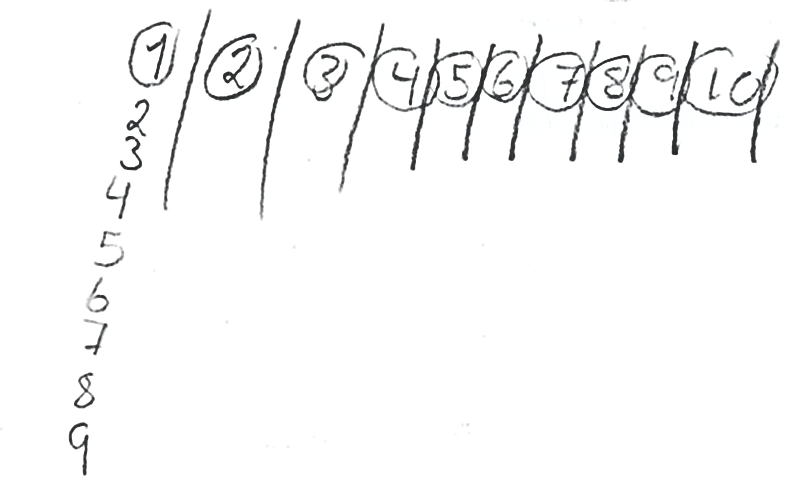 1 2 3 4 5 6 7 8 9 10
2
3
4
5
6
7
8
9